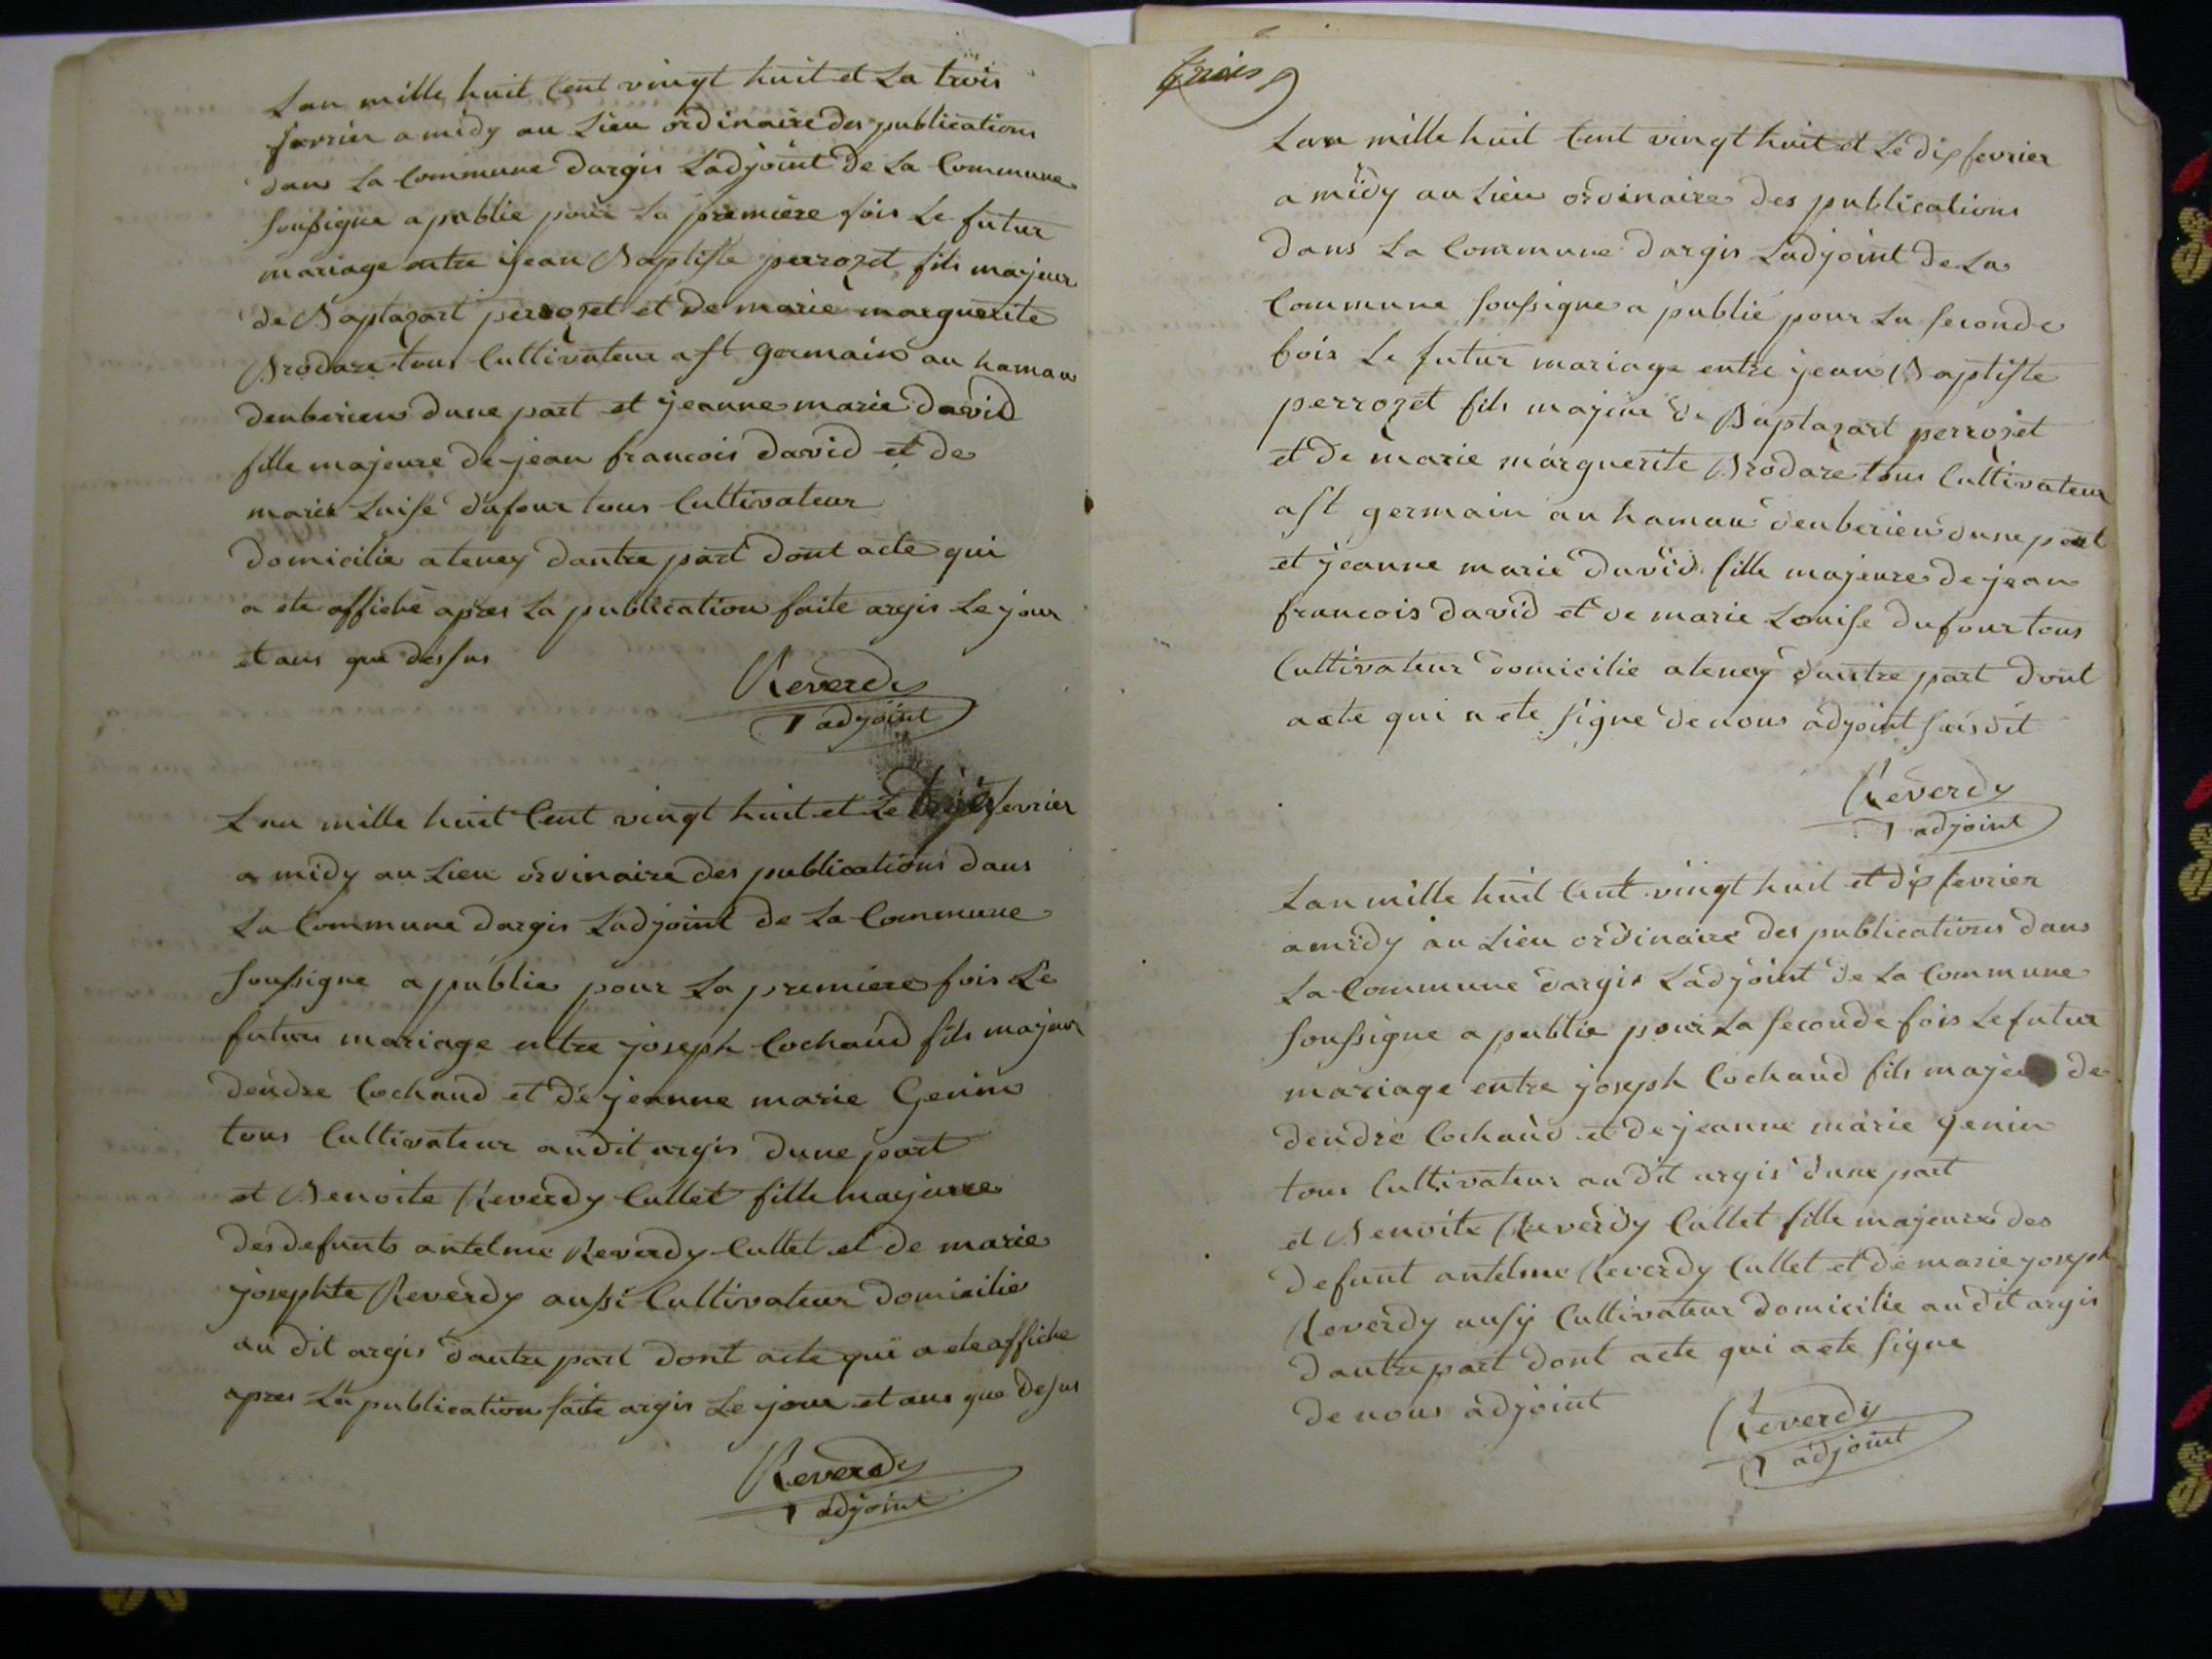 Lan mille huit Cent vingt huit et La trois
fevrier a midy au Lieu ordinaire des publications
dans La Commune dargis Ladjoint de La Commune
soussigne a publie pour La premiere fois Le futur
mariage entre jean Baptiste perrozet fils majeur
de Baptazart perrozet et de marie marguerite
Brodare tous Cultivateur a st Germain au hamau
denberieu dune part et jeanne marie david
fille majeure de jean francois david et de
marie Luise dufour tous Cultivateur
domicilie a teney dautre part dont acte qui
a ete affiché apres La publication faite argis Le jour
et ans que dessus
Reverdy
adjoint
Lan mille huit Cent vingt huit et Le trois fevrier
a midy au Lieu ordinaire des publications dans
La Commune dargis Ladjoint de La Commune
soussigne a publie pour La premiere fois Le
future mariage entre joseph Cochaud fils majeur
dendre Cochaud et de jeanne marie Genin
tous Cultivateur audit argis dune part
et Benoite Reverdy Cullet fille majeure
des defunts antelme Reverdy Cullet et de marie
josephte Reverdy aussi Cultivateur domicilie
au dit argis dautre part dont acte qui a ete affiche
apres La publication faite argis Le jour et ans que desus
Reverdy
adjoint
trois
Lan mille huit Cent vingt huit et Le dix fevrier
a midy au Lieu ordinaire des publications
dans La Commune dargis Ladjoint de La
Commune soussigne a publié pour La seconde
fois Le futur mariage entre jean Baptiste
perrozet fils majeur de Baptazart perrozet
et de marie marguerite Brodare tous Cultivateur
a st germain au hamau denberieu dune part
et jeanne marie david fille majeure de jean
francois david et de marie Louise dufour tous
Cultivateur domicilie a teney dautre part dont
acte qui a ete signe de nous adjoint susdit
Reverdy
adjoint
Lan mille huit Cent vingt huit et dix fevrier
a midy au Lieu ordinaire des publications dans
La Commune dargis Ladjoint de La Commune
soussigne a publie pour La seconde fois Le futur
mariage entre joseph Cochaud fils majeur de
dendre Cochaud et de jeanne marie genin
tous Cultivateur au dit argis dune part
et Benoite Reverdy Cullet fille majeure des
defunt antelme Reverdy Cullet et de marie joseph
Reverdy ausy Cultivateur domicilie au dit argis
dautre part dont acte qui a ete signe
de nous adjoint
Reverdy
adjoint